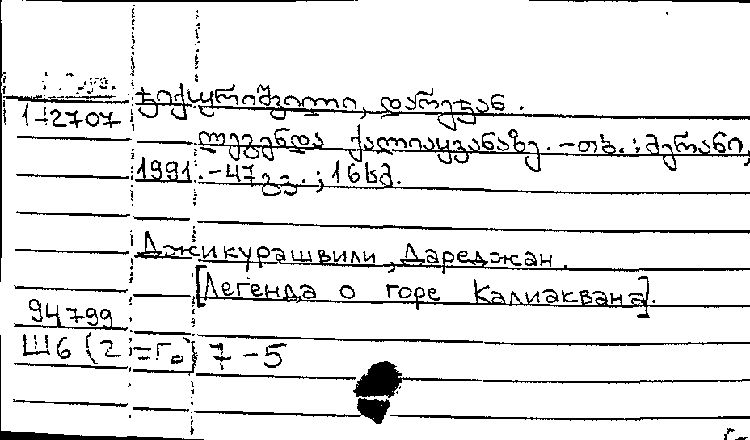 1-12707 ჯიქურიშვილი, დარეჯან.
ლეგენდა ქალიაყვანაზე. - თბ.: მერანი,
1991. - 47 გვ.; 16 სმ.
Джикурашвили, Дареджан.
[Легенда о горе Калиаквана].
94799
Ш6 (2=Го) 7-5